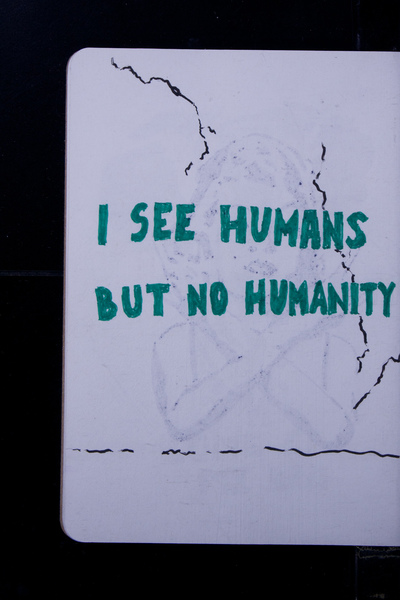 I SEE HUMANS
BUT NO HUMANITY